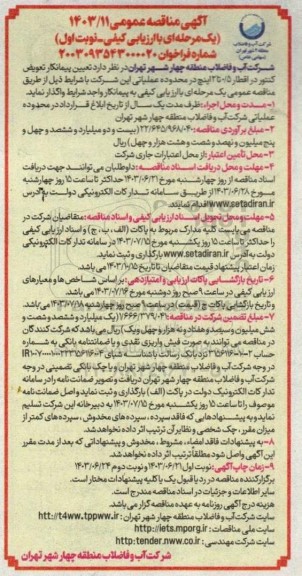 آگهی مناقصه عمومی ۱۴۰۳/۱۱
(یک‌مرحله‌ای با ارزیابی کیفی_نوبت اول)
شماره فراخوان ۲۰۰۳۰۹۳۵۴۳۰۰۰۰۲۰
شرکت آب و فاضلاب
منطقه ۴ شهر تهران
شرکت آب و فاضلاب منطقه چهار شهر تهران در نظر دارد تعیین پیمانکار تعویض
کنتور در اقطار ۱/۵-۱۲ اینچ در محدوده عملیاتی این شرکت با شرایط ذیل از طریق
مناقصه عمومی یک مرحله‌ای با ارزیابی کیفی به پیمانکار واجد شرایط واگذار نماید.
۱- مدت و محل اجراء: ظرف مدت یک سال از تاریخ ابلاغ قرارداد در محدوده
عملیاتی شرکت آب و فاضلاب منطقه چهار شهر تهران
۲- مبلغ برآوردی مناقصه: (بیست و دو میلیارد و ششصد و چهل و
پنج میلیون و نهصد و شصت و هشت هزار و چهل) ریال
۳- محل تأمین اعتبار: از محل اعتبارات جاری شرکت
۴- مهلت و محل دریافت اسناد مناقصه: داوطلبان می‌توانند جهت دریافت
اسناد مناقصه از روز چهارشنبه مورخ ۱۴۰۳/۰۶/۲۱ حداکثر تا ساعت ۱۵ روز چهارشنبه
مورخ ۱۴۰۳/۰۶/۲۸ از طریق سامانه تدارکات الکترونیکی دولت به آدرس
www.setadiran.ir اقدام نمایند.
۵- مهلت و محل تحویل اسناد ارزیابی کیفی و اسناد مناقصه: متقاضیان شرکت در
مناقصه می‌بایست کلیه مدارک مربوط به پاکات (الف، ب، ج) و اسناد ارزیابی کیفی
را حداکثر تا ساعت ۱۵ روز یکشنبه مورخ ۱۴۰۳/۰۷/۱۵ در سامانه تدارکات الکترونیکی
دولت به آدرس www.setadiran.ir بارگذاری و ثبت نماید.
زمان اعتبار پیشنهاد قیمت متقاضیان تا تاریخ می‌باشد.
۶- تاریخ بازگشایی پاکات ارزیابی و امتیازدهی: براساس شاخص‌ها و معیارهای
ارزیابی کیفی در ساعت ۹ صبح روز دوشنبه مورخ ۱۴۰۳/۰۷/۱۶ می‌باشد.
و تاریخ بازگشایی پاکات (ج) قیمت در ساعت ۹ صبح روز چهارشنبه ۱۴۰۳/۰۷/۱۸ می‌باشد.
۷- مبلغ تضمین شرکت در مناقصه: ۱/۶۶۶/۳۷۹/۰۴۱ (یک میلیارد و ششصد و شصت و
شش میلیون و سیصد و هفتاد و نه هزار و چهل و یک) ریال می‌باشد که شرکت کنندگان
در مناقصه می‌توانند به صورت فیش واریزی نقدی و یا ضمانتنامه بانکی به شماره
حساب نزد بانک رسالت با شناسه شبای
در وجه شرکت آب و فاضلاب منطقه چهار شهر تهران و یا چک بانکی تضمینی در وجه
شرکت آب و فاضلاب منطقه چهار شهر تهران دریافت و تصویر ضمانت نامه را در سامانه
تدارکات الکترونیک دولت در پاکت (الف) بارگذاری و ثبت نماید و اصل ضمانت نامه
موصوف را تا ساعت ۱۵ روز یکشنبه مورخ ۱۴۰۳/۰۷/۱۵ به دبیرخانه این شرکت تسلیم
نماید و به پیشنهادهایی که فاقد سپرده، سپرده‌های مخدوش، سپرده‌های کمتر از
میزان مقرر، چک شخصی و نظایر آن ترتیب اثر داده نخواهد شد.
۸- به پیشنهادات فاقد امضاء، مشروط، مخدوش و پیشنهاداتی که بعد از مدت مقرر
این آگهی واصل شود مطلقاً ترتیب اثر داده نخواهد شد.
۹- زمان چاپ آگهی: نوبت اول ۱۴۰۳/۰۶/۲۱ و نوبت دوم ۱۴۰۳/۰۶/۲۴
برگزارکننده مناقصه در رد یا قبول یک یا کلیه پیشنهادات مختار است.
سایر اطلاعات و جزئیات در اسناد مناقصه مندرج است.
هزینه درج آگهی روزنامه به عهده مناقصه گزار می‌باشد.
سایت شرکت آب و فاضلاب منطقه چهار شهر تهران: htt://t4ww.tppww.ir
سایت ملی مناقصات: http://iets.mporg.ir
سایت شرکت مهندسی: http:tender.nww.co.ir
شرکت آب و فاضلاب منطقه چهار شهر تهران